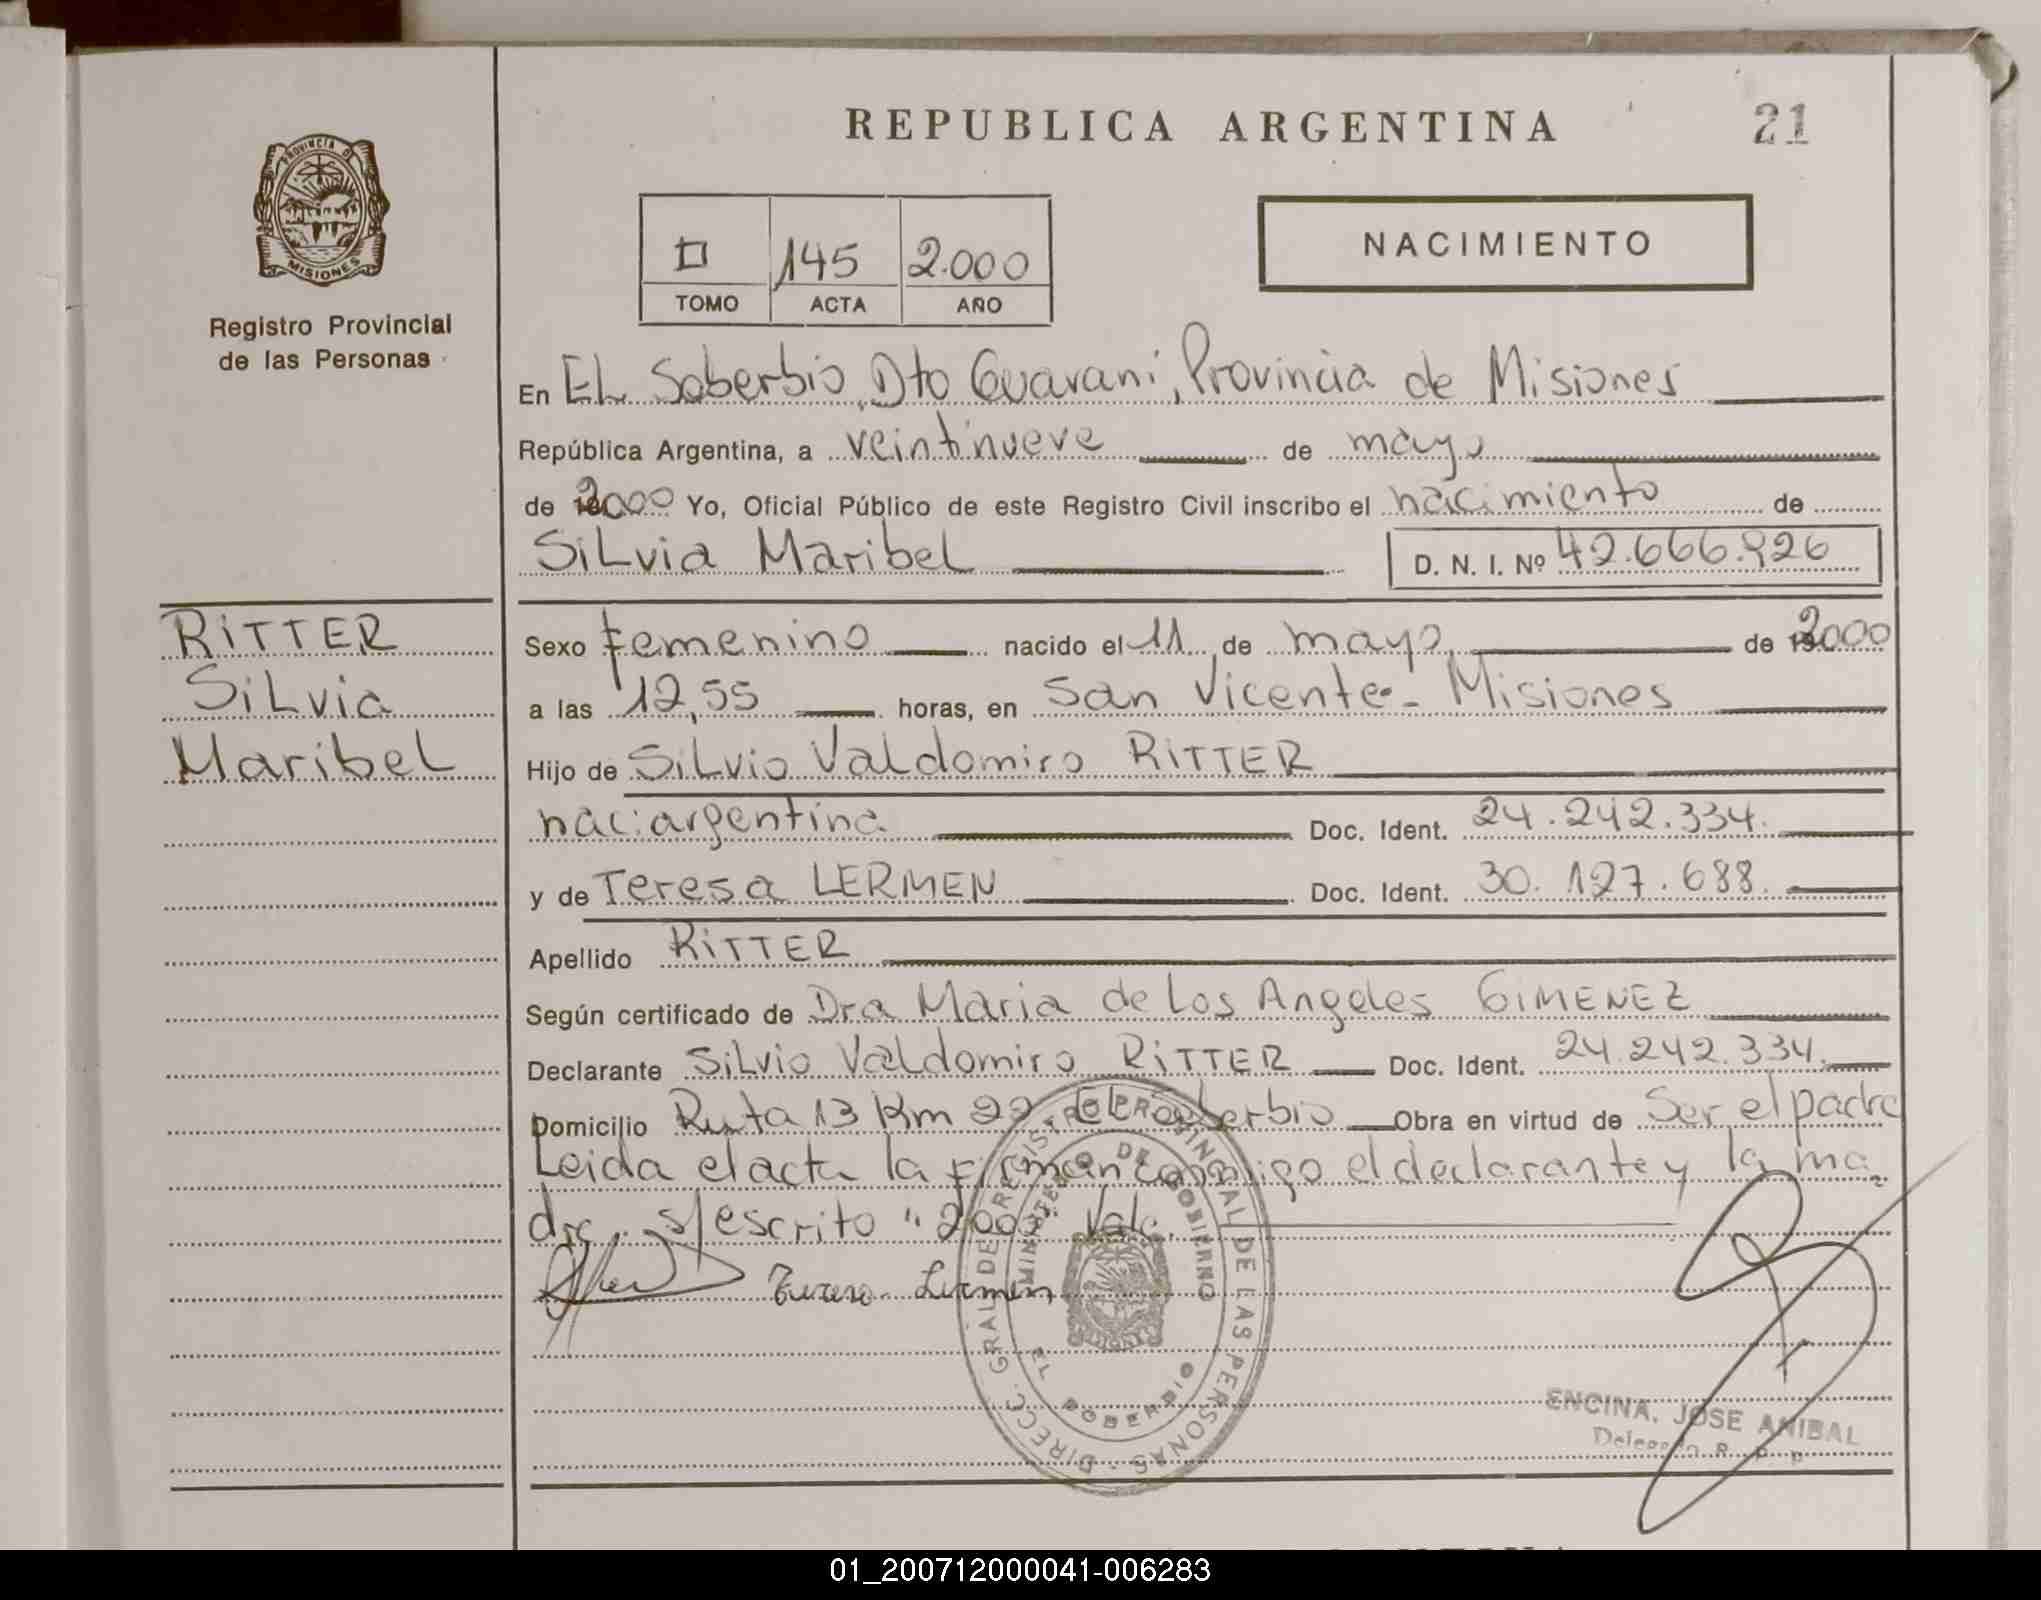 REPUBLICA ARGENTINA
21
PROVINCIA DE
MISIONES
Registro Provincial
de las Personas
145 2.000
TOMO ACTA AÑO
NACIMIENTO
En EL Soberbio, Dto Guarani, Provincia de Misiones
República Argentina, a veintinueve de mayo
de 2000 Yo, Oficial Público de este Registro Civil inscribo el nacimiento de
SiLvia MaribeL D. N. I. Nº 42.666.926
RiTTER
SiLvia
MaribeL
Sexo femenino nacido el 11 de mayo de 2000
a las 12,55 horas, en San Vicente - Misiones
Hijo de SiLvio VaLdomiro RiTTER
nac: argentina Doc. Ident. 24.242.334.
y de Teresa LERMEN Doc. Ident. 30.127.688.
Apellido RiTTER
Según certificado de Dra Maria de Los Angeles GIMENEZ
Declarante SiLvio VaLdomiro RiTTER Doc. Ident. 24.242.334.
Domicilio Ruta 13 Km 22 El Soberbio Obra en virtud de Ser el padre
Leida el acta la firman conmigo el declarante y la ma
dre. s/escrito "2000" Vale.
Lermen
DIRECC. GRAL DE REGISTRO PROVINCIAL DE LAS PERSONAS -
MINISTERIO DE GOBIERNO
EL SOBERBIO
ENCINA, JOSE ANIBAL
R. P. P.
01_200712000041-006283